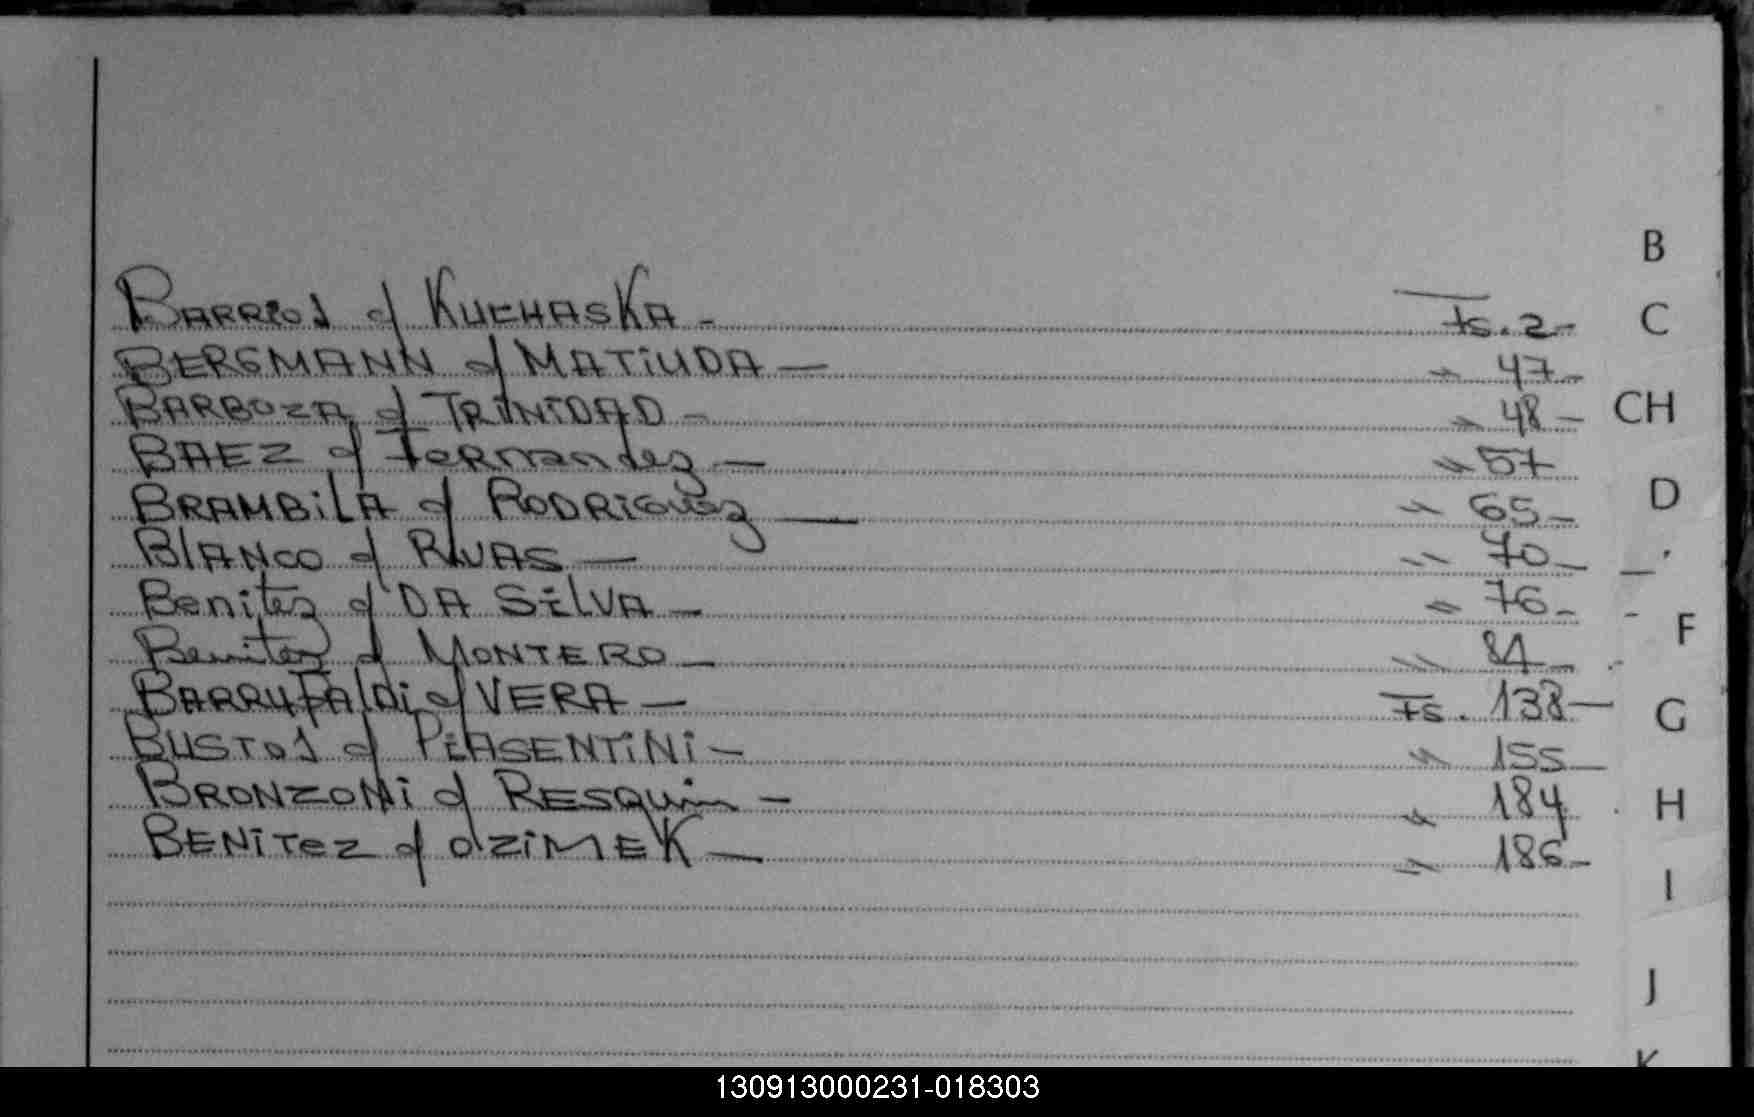 B
BARRIOS c/ KUCHASKA - Fs. 2 -
C
BERGMANN c/ MATIUDA - " 47 -
BARBOZA c/ TRINIDAD - " 48 -
CH
BAEZ c/ Fernandez - " 57
BRAMBILA c/ RODRIGuez - " 65 -
D
BlANCO c/ RIVAS - " 70 -
Benitez c/ DA SilVA - " 76 -
F
Benitez c/ MONTERO - " 84 -
BARRUFAlDi c/ VERA - Fs. 138 -
G
BUSTOS c/ PiASENTiNi - " 155 -
BRONZONi c/ RESQuin - " 184
H
BENiTez c/ OZiMEK - " 186 -
I
J
K
130913000231-018303